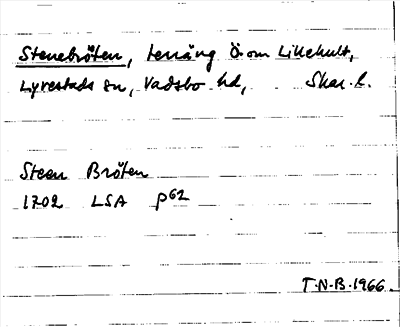 Stenebröten, terräng Ö om Lillehult,
Lyrestads sn, Vadsbo hd, Skar. l.
Steen Bröten
1702 LSA p62
T.N.B. 1966.